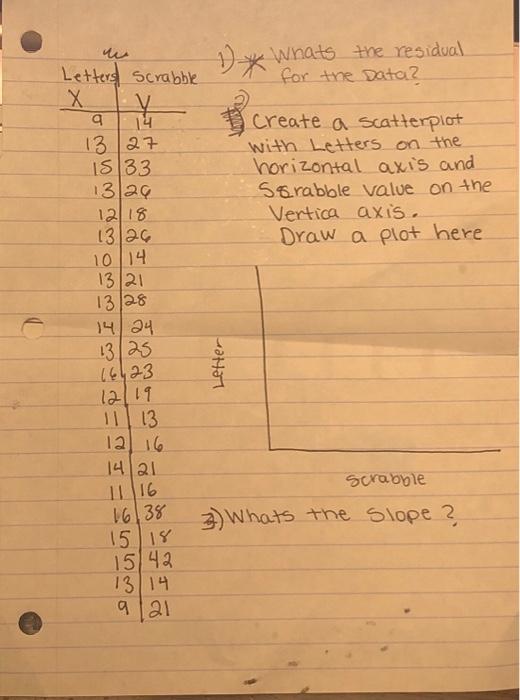 1) * Whats the residual
for the Data?
Letters Scrabble
X Y
9 14
13 27
15 33
13 26
12 18
13 26
10 14
13 21
13 28
14 24
13 25
16 23
12 19
11 13
12 16
14 21
11 16
16 38
15 18
15 42
13 14
9 21
2) Create a scatterplot
with Letters on the
horizontal axis and
Scrabble value on the
Vertica axis.
Draw a plot here
Letter
Scrabble
3) Whats the Slope?